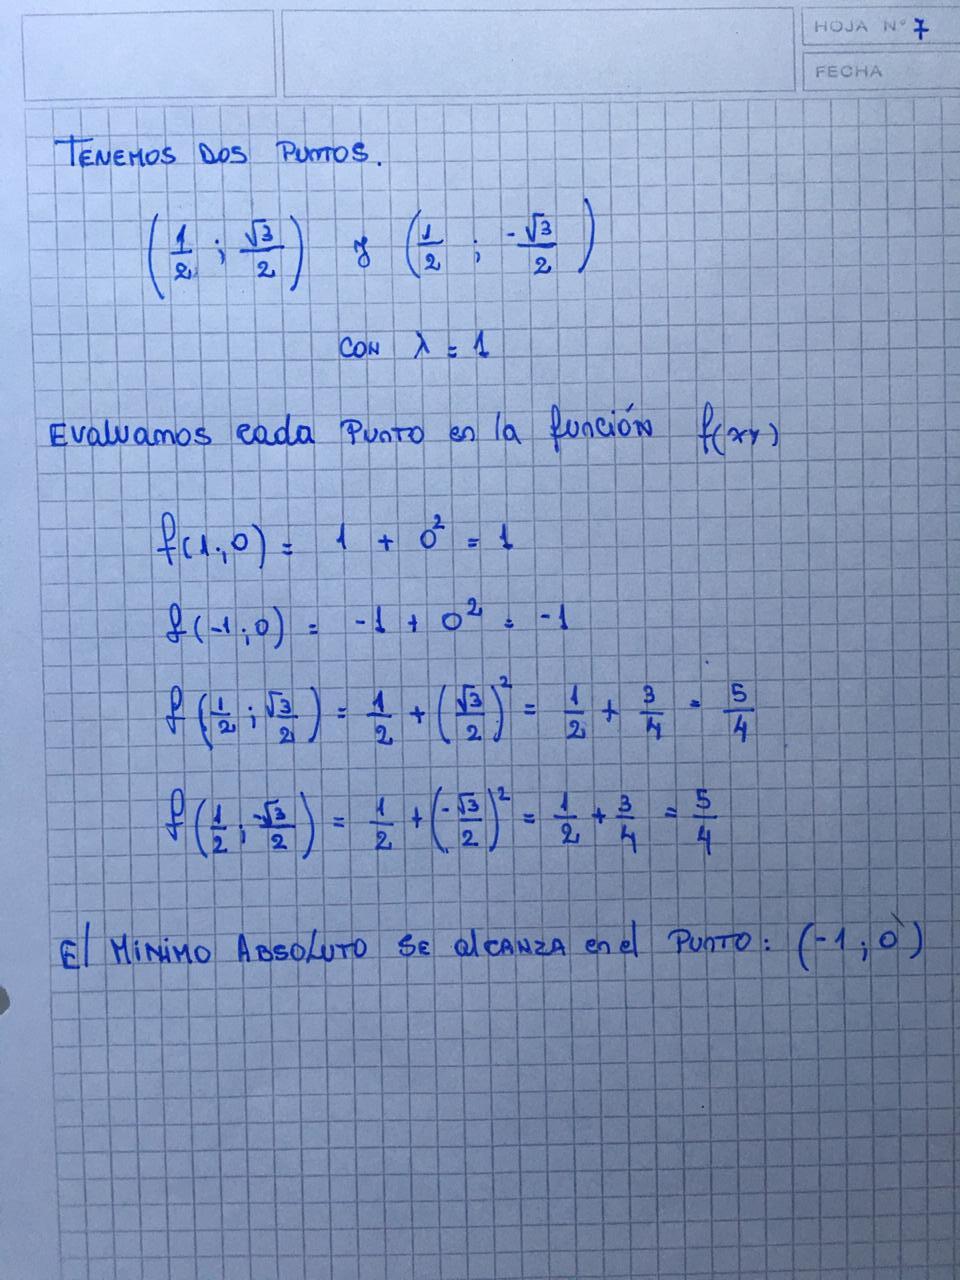 HOJA N° 7
FECHA
TENEMOS DOS PUNTOS.
(1/2 ; √3/2) y (1/2 ; -√3/2)
CON λ = 1
Evaluamos cada PUNTO en la función f(xy)
f(1;0) = 1 + 0² = 1
f(-1;0) = -1 + 0² = -1
f(1/2 ; √3/2) = 1/2 + (√3/2)² = 1/2 + 3/4 = 5/4
f(1/2 ; -√3/2) = 1/2 + (-√3/2)² = 1/2 + 3/4 = 5/4
El MINIMO ABSOLUTO SE alCANZA en el PUNTO: (-1 ; 0)